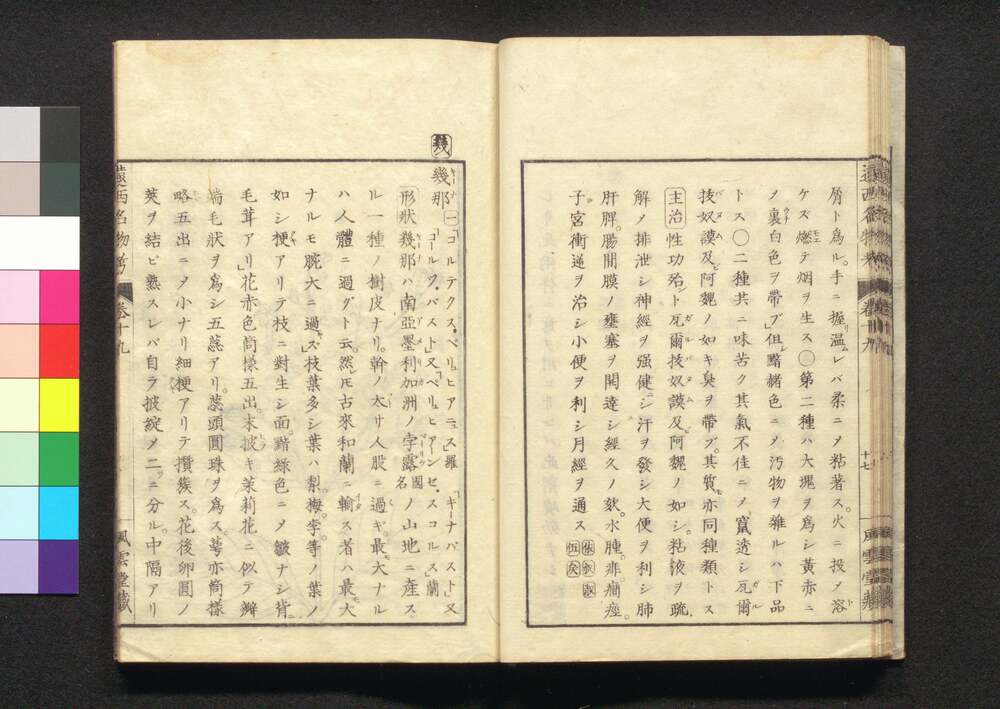 屑ト爲ル。手ニ握温レバ柔ニメ粘著ス。火ニ投メ溶
ケズ燃テ烟ヲ生ス〇第二種ハ大塊ヲ爲シ黄赤ニ
ノ裏白色ヲ帶ブ」但黯赭色ニメ汚物ヲ雜ルハ下品
トス〇二種共ニ味苦ク其氣不佳ニメ竄透シ瓦爾
抜奴謨及阿魏ノ如キ臭ヲ帶ブ。其質亦同種類トス
主治 性功殆ント瓦爾抜奴謨及阿魏ノ如シ。粘液ヲ疏
解ノ排泄シ神經ヲ强健ニシ汗ヲ發シ大便ヲ利シ肺
肝脾。腸間膜ノ壅塞ヲ開達シ經久ノ欬。水腫。痱。癇。痙。
子宮衝逆ヲ治シ小便ヲ利シ月經ヲ通ス
遠西名物考 卷十九 十七 風雲堂藏
幾
幾那 一「コルテクス。ペリュヒアニュス」羅「キーナバスト」又
「コールツ。バスト」又「ペリュヒアーンセ。スコルス」蘭
形状 幾那ハ南亞墨利加洲ノ孛露國名ノ山地ニ產ス
ル一種ノ樹皮ナリ。幹ノ太サ人股ニ過ギ。最大ナル
ハ人體ニ過グト云。然𪜈古來和蘭ニ輸ス者ハ最大
ナルモ腕大ニ過ズ枝葉多シ葉ハ梨。梅。李。等ノ葉ノ
如シ梗アリテ枝ニ對生シ面。黯綠色ニメ皺ナシ背ニ
毛茸アリ」花赤色筒樣五出。末披キ茉莉花ニ似テ瓣
端毛狀ヲ爲シ五蕊アリ。蕊頭圓珠ヲ爲ス。萼亦筒樣
略五出ニメ小ナリ細梗アリテ攢簇ス。花後卵圓ノ
莢ヲ結ビ熟スレバ自ラ披綻メ二ツニ分ル。中隔アリ
遠西名物考 卷十九 風雲堂藏